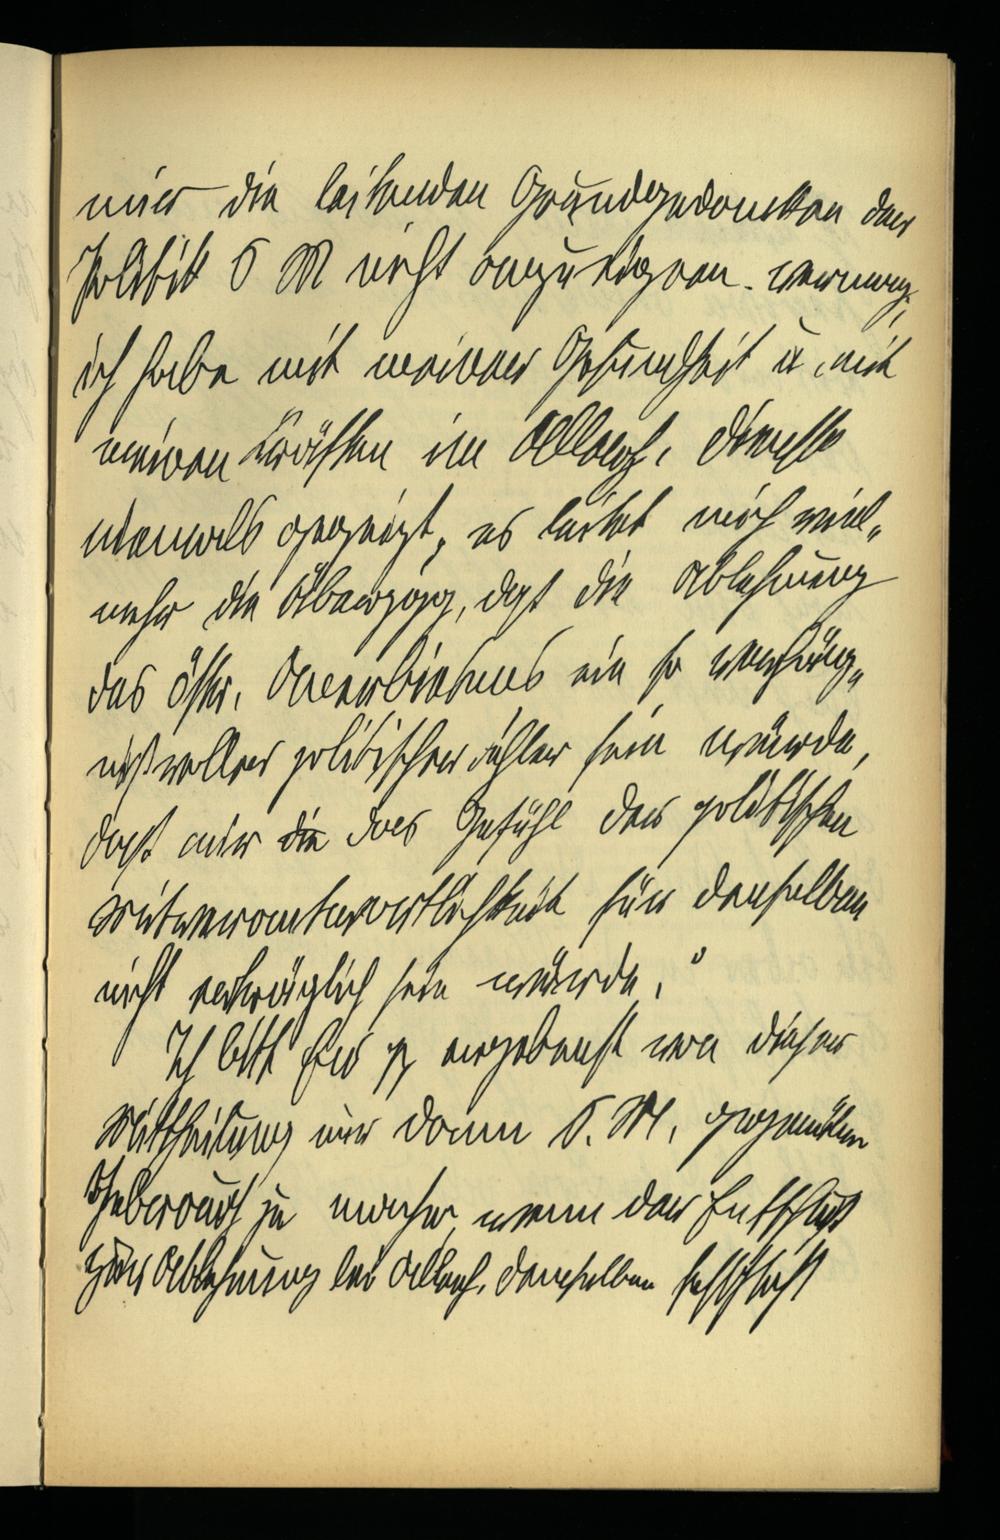 mir die leitenden Grundgedanken der
Politik S M nicht anzueignen vermag,
ich habe mit meiner Gesundheit u. mit
meinen Kräften im Allerh. Dienste
niemals gegeizt, es leitet mich viel„
mehr die Überzgg, daß die Ablehnung
des östr. Anerbietens ein so verhäng„
nißvoller politischer Fehler sein würde,
daß mir die das Gefühl der politischen
Mitverantwortlichkeit für denselben
nicht erträglich sein würde."
Ich bitte Ew pp ergebenst von dieser
Mittheilung nur dann S. M. gegenüber
Gebrauch zu machen, wenn der Entschluß
zur Ablehnung bei Allerh. demselben feststeht